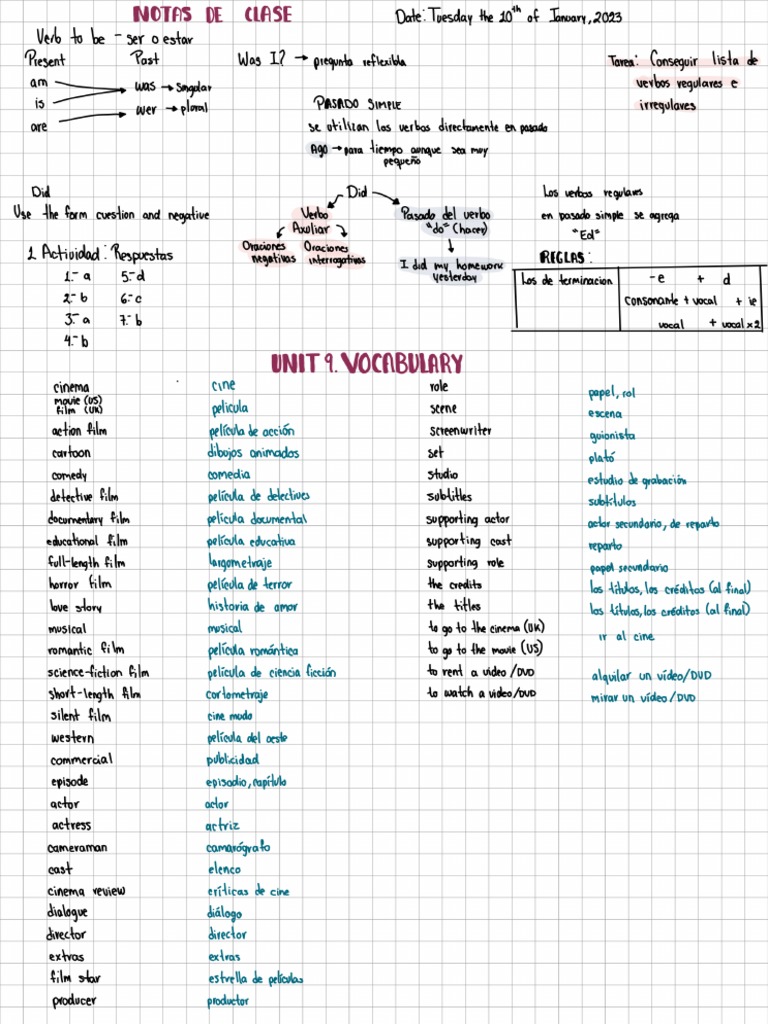 NOTAS DE CLASE
Date: Tuesday the 10th of January, 2023
Verb to be - ser o estar
Present Past
am
is
are
was → singular
wer → plural
Was I? → pregunta reflexible
Tarea: Conseguir lista de
verbos regulares e
irregulares
PASADO SIMPLE
se utilizan los verbos directamente en pasado
Ago → para tiempo aunque sea muy
pequeño
Did
Use the form cuestion and negative
1. Actividad: Respuestas
1.- a 5.- d
2.- b 6.- c
3.- a 7.- b
4.- b
Did
Verbo
Auxliar
Oraciones
negativas
Oraciones
interrogativas
Pasado del verbo
"do" (hacer)
I did my homework
yesterday
Los verbos regulares
en pasado simple se agrega
"Ed"
REGLAS:
Los de terminacion
-e + d
consonante + vocal + ie
vocal + vocal x2
UNIT 9. VOCABULARY
cinema cine
movie (US)
film (UK) pelicula
action film película de acción
cartoon dibujos animados
comedy comedia
detective film película de detectives
documentary film película documental
educational film película educativa
full-length film largometraje
horror film película de terror
love story historia de amor
musical musical
romantic film película romántica
science-fiction film película de ciencia ficción
short-length film cortometraje
silent film cine mudo
western película del oeste
commercial publicidad
episode episodio, capítulo
actor actor
actress actriz
cameraman camarógrafo
cast elenco
cinema review críticas de cine
dialogue diálogo
director director
extras extras
film star estrella de películas
producer productor
role papel, rol
scene escena
screenwriter guionista
set plató
studio estudio de grabación
subtitles subtítulos
supporting actor actor secundario, de reparto
supporting cast reparto
supporting role papel secundario
the credits los títulos, los créditos (al final)
the titles los títulos, los créditos (al final)
to go to the cinema (UK)
to go to the movie (US) ir al cine
to rent a video/DVD alquilar un vídeo/DVD
to watch a video/DVD mirar un vídeo/DVD